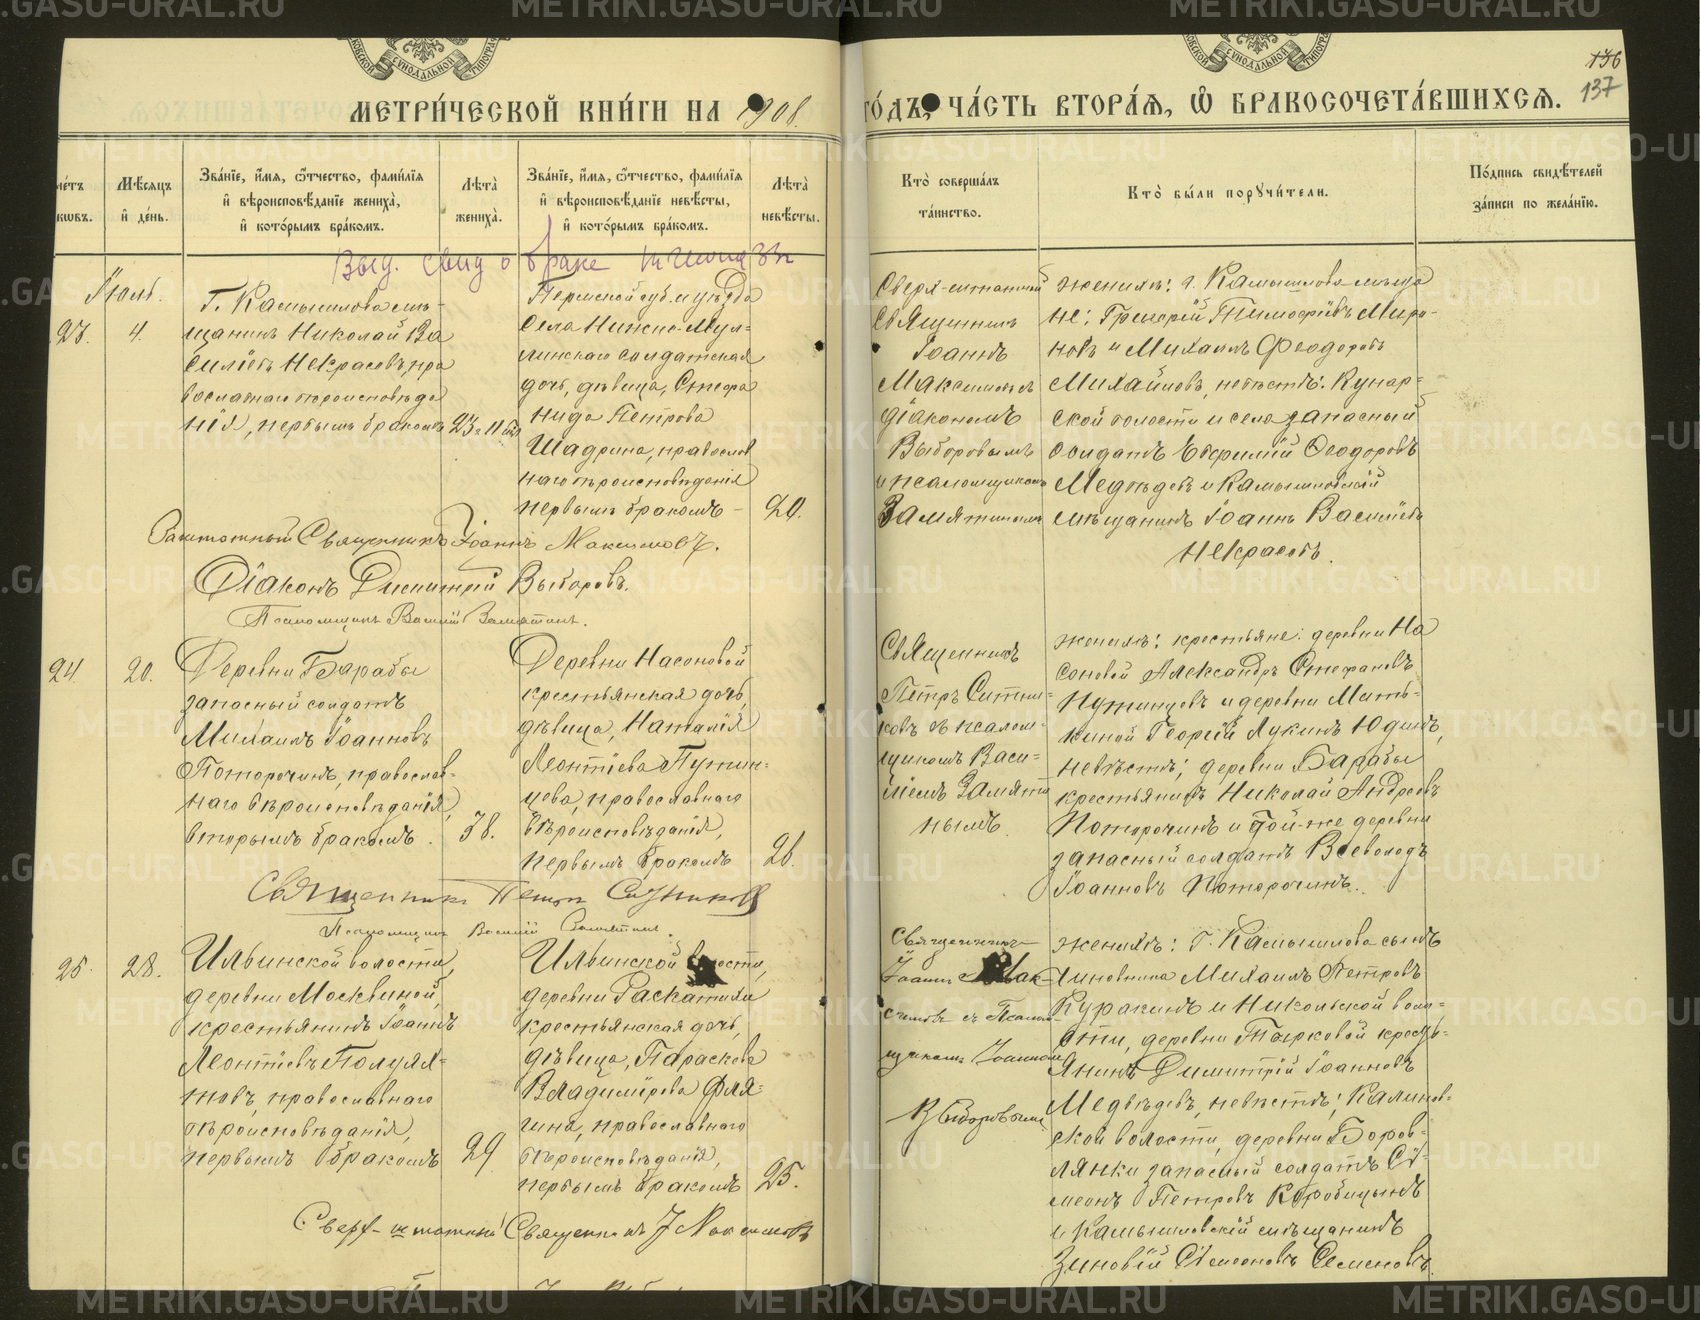 136
137
МЕТРИ́ЧЕСКОЙ КНИ́ГИ НА 1908.
ГО́ДЪ, ЧА́СТЬ ВТОРА́Я, Ѡ҆ БРАКОСОЧЕТА́ВШИХСЯ.
Мѣ́сяцъ
и҆ де́нь.
Зва́нїе, и҆́мя, ѻ҆́тчество, фами́лїя
и҆ вѣроисповѣ́данїе жениха̀,
и҆ кото́рымъ бра́комъ.
Лѣ́та
жениха̀.
Зва́нїе, и҆́мя, ѻ҆́тчество, фами́лїя
и҆ вѣроисповѣ́данїе невѣ́сты,
и҆ кото́рымъ бра́комъ.
Лѣ́та
невѣ́сты.
Кто̀ соверша́лъ
та́инство.
Кто̀ бы́ли порꙋчи́тели.
По́дпись свидѣ́телей
за́писи по жела́нїю.
Выд. свид о браке
Іюль.
23.
4.
Г. Камышлова мѣ-
щанинъ Николай Ва
силіевъ Некрасовъ, пра
вославнаго вѣроисповѣда
нія, первымъ бракомъ
Пермской губ. и уѣзда
Села Нижне-Мул=
линскаго солдатская
дочь, дѣвица, Стефа
нида Петрова
Шадрина, православ
наго вѣроисповѣданія
первымъ бракомъ -
20.
Сверх-штатный
Священникъ
Іоаннъ
Максимовъ съ
діакономъ
Выборовымъ
и псаломщикомъ
Замятинымъ
Жениха: г. Камышлова мѣща
не: Григорій Тимофѣевъ Миро-
новъ и Михаилъ Феодоровъ
Михайловъ, невѣстѣ: Кунар-
ской волости и села запасный
солдатъ Евфимій Феодоровъ
Медвѣдевъ и Камышловскій
мѣщанинъ Іоаннъ Васильевъ
Некрасовъ.
Заштатный Священникъ Іоаннъ Максимовъ.
Діаконъ Димитрій Выборовъ.
Псаломщикъ Василій Замятинъ.
24
20.
Деревни Барабы
запасный солдатъ
Михаилъ Іоанновъ
Поторочинъ, православ-
наго вѣроисповѣданія,
вторымъ бракомъ.
38.
Деревни Насоновой
крестьянская дочь,
дѣвица, Наталія
Леонтіева Путин-
цева, православнаго
вѣроисповѣданія,
первымъ бракомъ
26.
Священникъ
Петръ Ситни-
ковъ съ псалом-
щикомъ Васи-
ліемъ Замяти
нымъ.
Жениха: крестьяне: деревни На
соновой Александръ Стефановъ
Путинцевъ и деревни Мить-
киной Георгій Лукинъ Юдинъ,
невѣстѣ; деревни Барабы
крестьянинъ Николай Андреевъ
Поторочинъ и той-же деревни
запасный солдатъ Всеволодъ
Іоанновъ Поторочинъ.
Священникъ Петръ Ситниковъ
Псаломщикъ Василій Замятинъ.
25.
28.
Ильинской волости,
деревни Москвиной,
крестьянинъ Іоаннъ
Леонтіевъ Полуях-
товъ, православнаго
вѣроисповѣданія,
первымъ бракомъ
29
Ильинской волости,
деревни Раскатихи
крестьянская дочь,
дѣвица, Параскева
Владимірова Фля-
гина, православнаго
вѣроисповѣданія,
первымъ бракомъ
25.
Священникъ
Іоаннъ Мак-
симовъ съ Псалом-
щикомъ Іоанномъ
Выборовымъ
Жениха: г. Камышлова сынъ
Чиновника Михаилъ Петровъ
Куракинъ и Никольской воло-
сти, деревни Тырковой кресть-
янинъ Димитрій Іоанновъ
Медвѣдевъ, невѣстѣ; Калинов-
ской волости, деревни Боров-
лянки запасный солдатъ Сі-
меонъ Петровъ Коробицынъ
и Камышловскій мѣщанинъ
Зиновій Сімеоновъ Семеновъ.
Сверх-штатный Священникъ І Максимовъ
METRIKI.GASO-URAL.RU